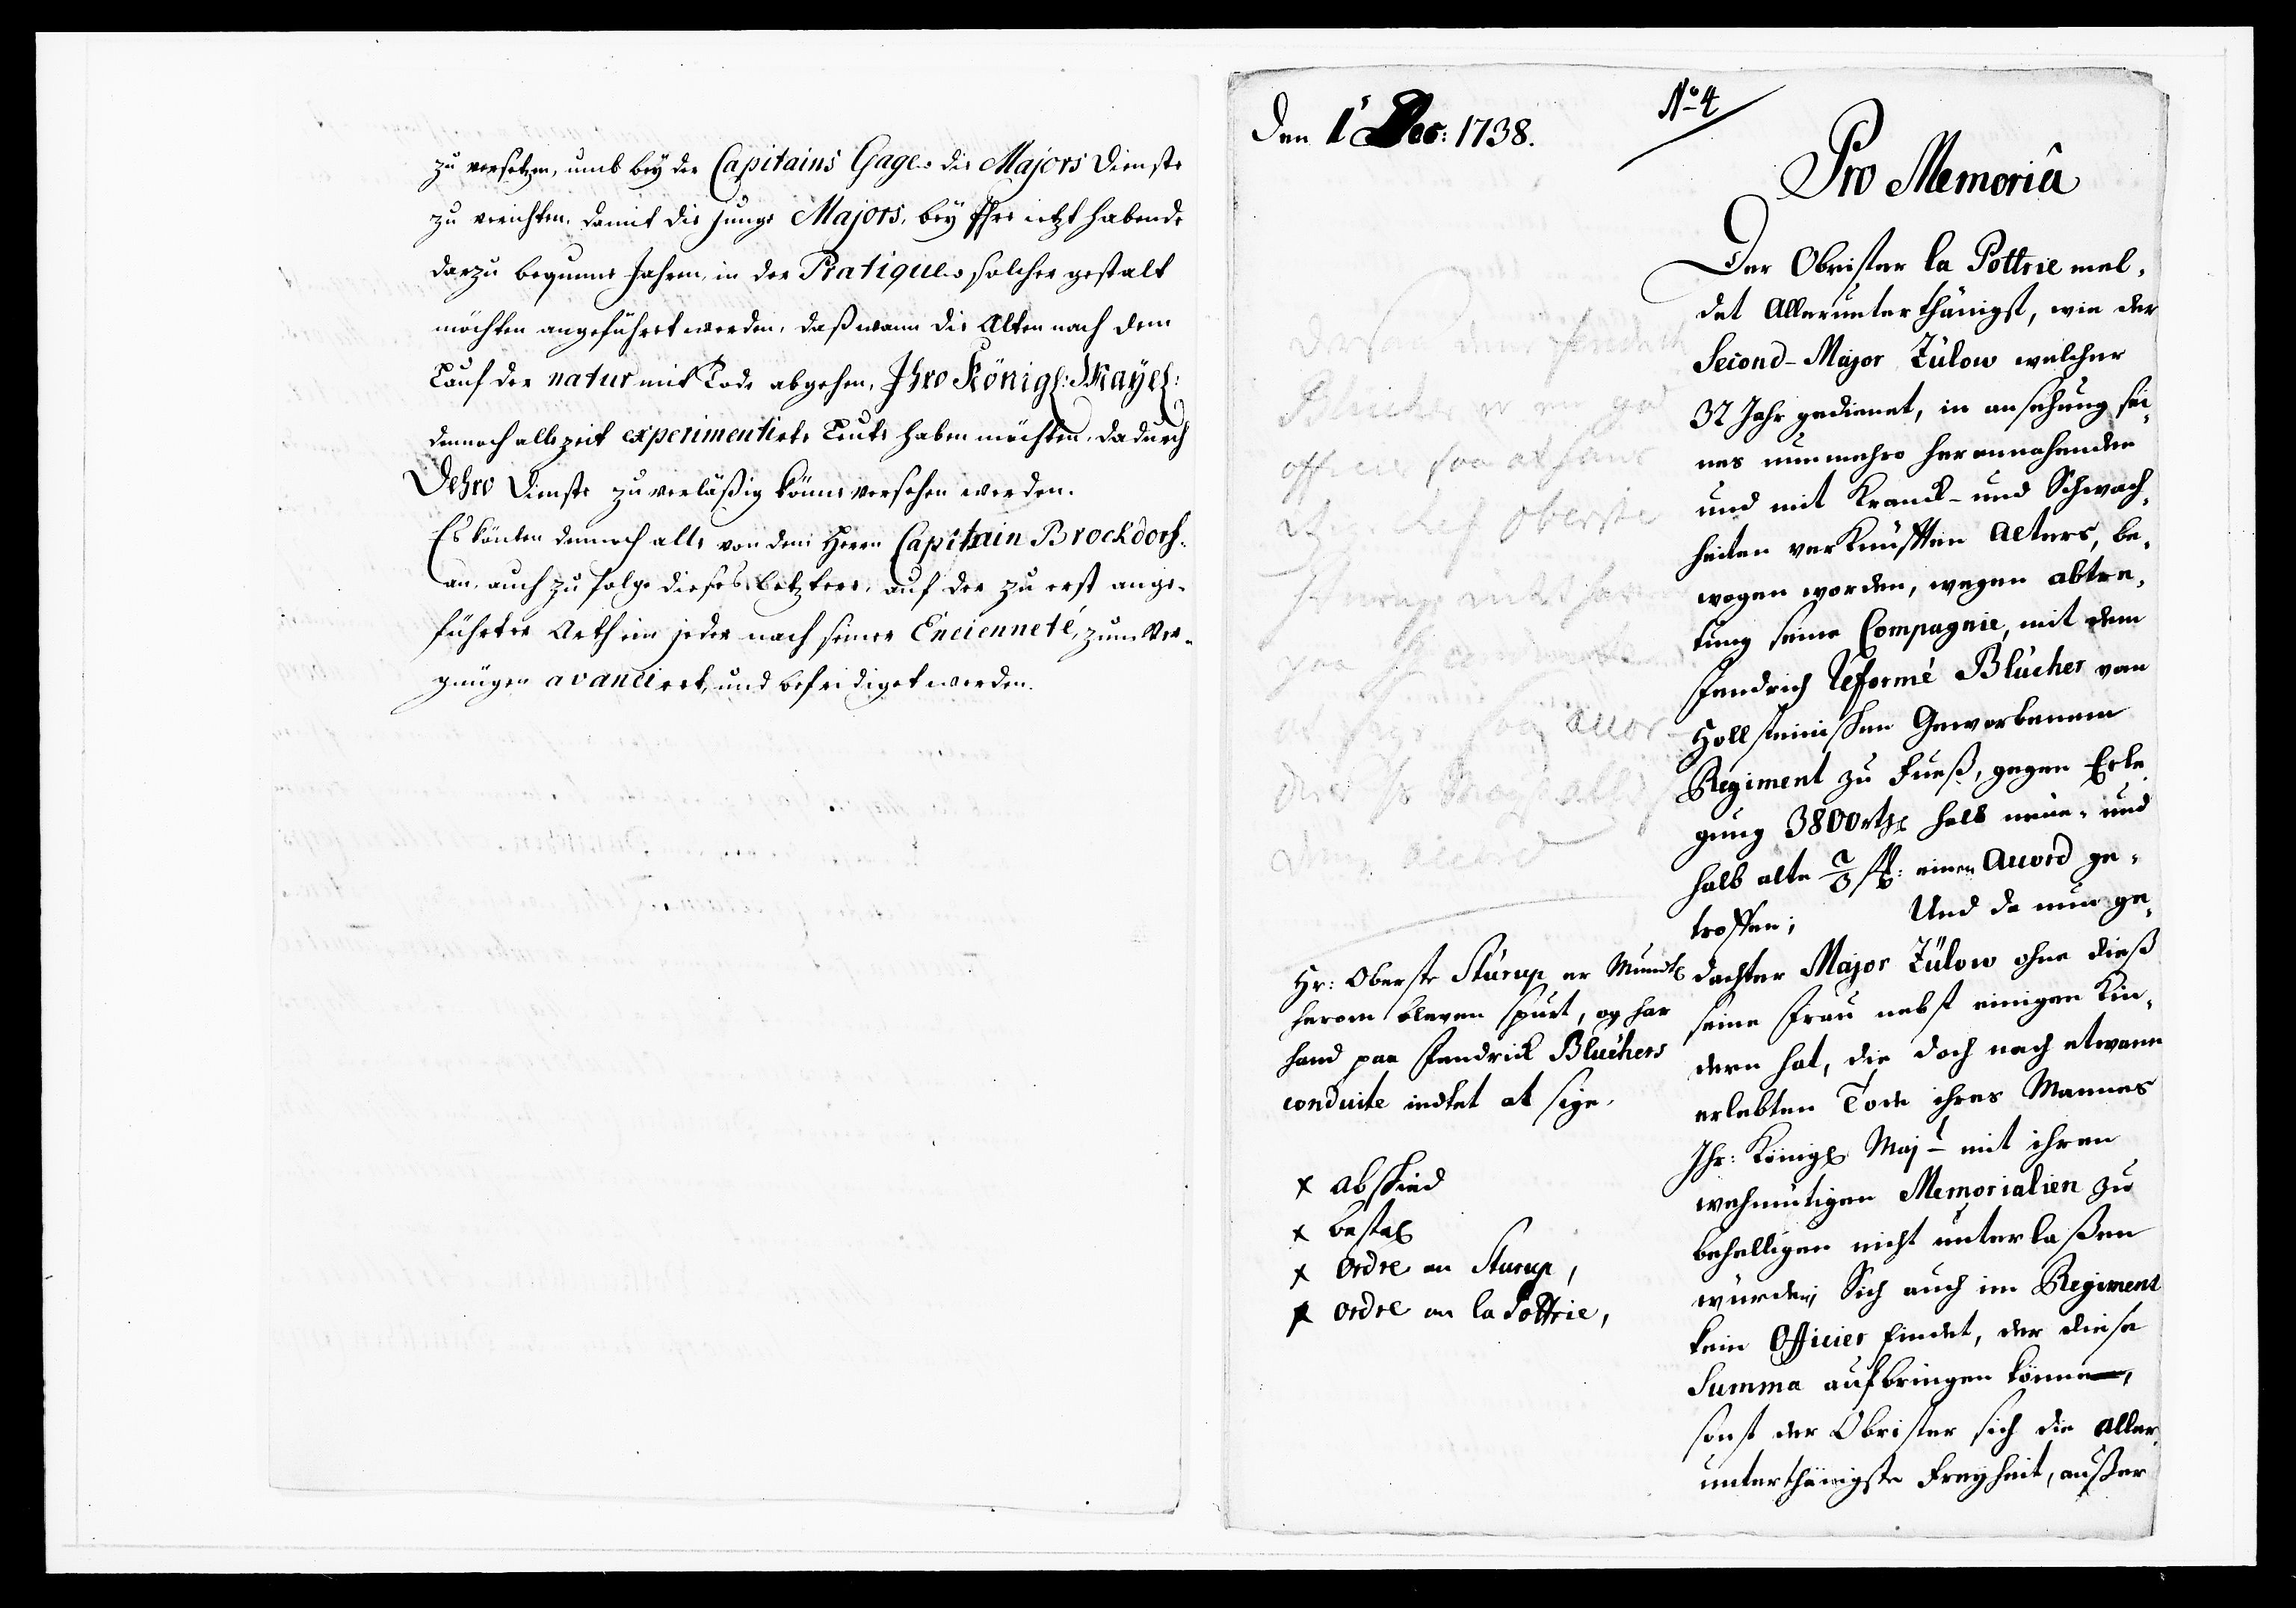 zu versetzen, umb bey der Capitains Gage die Majors Dienste
zu verichten, damit die junge Majors, bey Ihre ietzt habende
darzu bequeme Jahren, in der Pratique solcher gestalt
möchten angeführet werden, daß wann die Alten nach dem
Lauf der natur mit Tode abgehen, Ihro Königl: Mayel:
dennoch alle zeit experimentirte Leute haben möchten, dadurch
Dehro Dienste zuverläßig könne versehen werden.
Es könten demnoch alle von dem Herrn Capitain Brockdorf
an, auch zu folge dieses letztere, auf der zu erst ange-
führter Arth ein jeder nach seiner Encienneté, zum Ver-
gnügen avanciret, und befridiget werden.
Den 1t Dec: 1738.
No 4
Pro Memoriâ
Der Obrister la Pottrie mel-
det Allerunterthänigst, wie der
Second-Major Zülow welcher
32 Jahr gedienet, in ansehung sei-
nes nunmehro herannahenden
und mit Kranck- und Schwach-
heiten verknüfften Alters, be-
wogen worden, wegen abtre-
tung seine Compagnie, mit dem
Fendrich Reformé Blücher vom
Hollsteinischen Geworbenem
Regiment zu Fueß, gegen Erle-
gung 3800 rthl halb neue- und
halb alte 2/3 st: einen Accord ge-
troffen; Und da nun ge-
dachter Major Zülow ohne dieß
seine Frau nebst einigen Kin-
dern hat, die doch nach etwann
erlebten Tode ihres Mannes
Ihr: Königl Majt mit ihren
wehmütigen Memorialien zu
behelligen nicht unterlaßen
würden; Sich auch im Regiment
kein Officier findet, der diese
Summa aufbringen könne,
sonst der Obrister sich die aller-
unterthänigste Freyheit, außer
dersom denne Fendrich
Blücher er en god
officier saa at hans
Chef Oberste
Sturup intet har
paa hs conduite
at sige saa accor-
derer
denne accord
Hr: Oberste Sturup er Mundtl
herom bleven spurt, og har
hand paa Fendrick Blüchers
conduite indtet at sige.
x abskied
x bestal
x ordre an Sturup,
x ordre an la Pottrie,